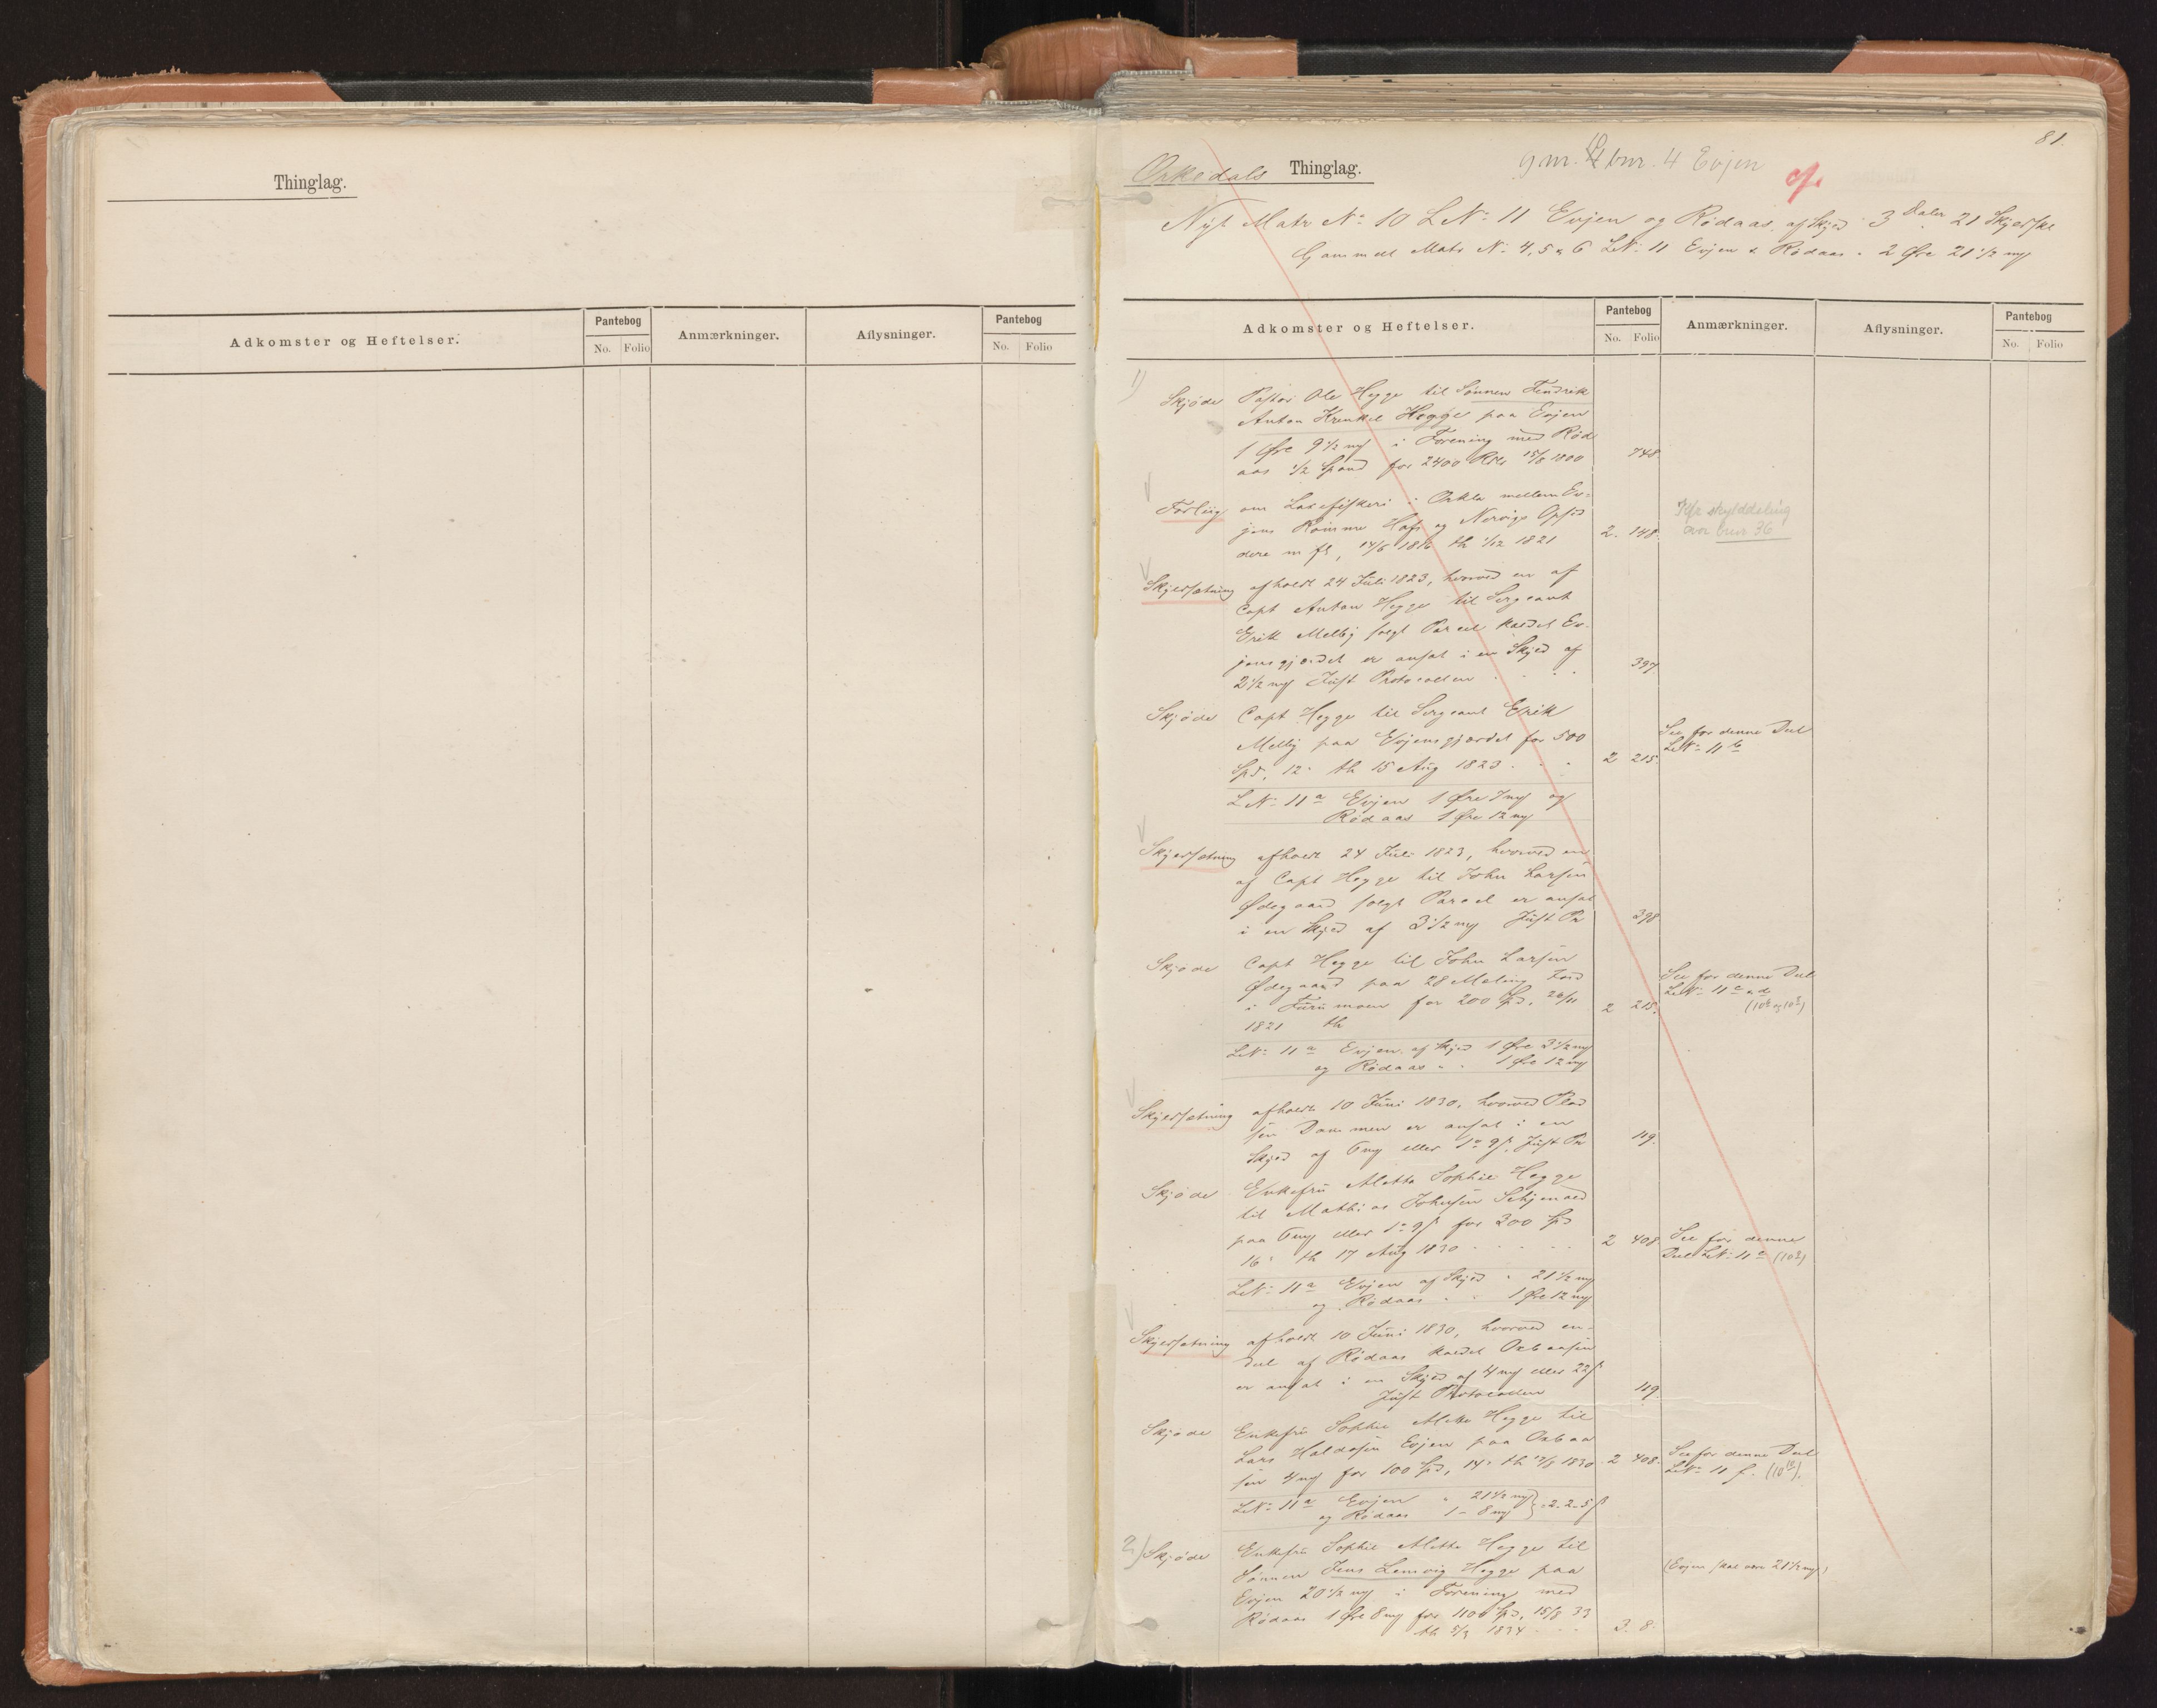 Thinglag.
Adkomster og Heftelser.
Pantebog
No. Folio
Anmærkninger.
Aflysninger.
Pantebog
No. Folio
81.
Orkedals Thinglag.
gnr. bnr. 4 Evjen
Nyt Matr No 10 L No 11 Evjen og Rødaas, af Skyld 3 Daler 21 Skill
Gammelt Matr No 4, 5 & 6 L No 11 Evjen & Rødaas - 2 Øre 21 1/2 mk
Adkomster og Heftelser.
Pantebog
No. Folio
Anmærkninger.
Aflysninger.
Pantebog
No. Folio
1) Skjøde Pastor Ole Hegge til Sønnen Hendrik
Anton Krenkel Hegge paa Evjen
1 Øre 9 1/2 mk i Forening med Rød
aas 1/2 Spand for 2400 Rdr 15/8 1800 748
Forliig om Laxefiskeri i Orkla mellem Ev-
jens Rømme Hofs og Nervigs Opsid
dere m fl, 14/6 18 th 1/12 1821 2. 148.
Kfr skylddeling
av bnr 36
Skyldsætning afholdt 24 Juli 1823, hvorved en af
Capt Anton Hegge til Sergeant
Erik Melby solgt Parcel kaldet Ev-
jensgjærdet er ansat i en Skyld af
2 1/2 mk Just Protocollen 397
Skjøde Capt Hegge til Sergeant Erik
Melby paa Evjensgjærdet for 500
Spd, 12. th 15 Aug 1823 2 215.
See for denne Deel
L No 11 b
L No 11 a Evjen 1 Øre 7 mk og
Rødaas 1 Øre 12 mk
Skyldsætning afholdt 24 Juli 1823, hvorved en
af Capt Hegge til John Larsen
Ødegaard solgt Parcel er ansat
i en Skyld af 3 1/2 mk Just Pr 398
Skjøde Capt Hegge til John Larsen
Ødegaard paa 28 Maling Jord
i Furumoen for 200 Spd, 26/11
1821 th 2 215.
See for denne Deel
L No 11 c & d
L No 11 a Evjen af Skyld 1 Øre 3 1/2 mk
og Rødaas " " 1 Øre 12 mk
Skyldsætning afholdt 10 Juni 1830, hvorved Plad
sen Dammen er ansat i en
Skyld af 6 mk eller 1 " 9 s, Just Pr 119.
Skjøde Enkefru Aletta Sophie Hegge
til Mathias Johnsen
paa 6 mk eller 1 " 9 s for 300 Spd
16. th 17 Aug 1830 2 408
See for denne
Deel L No 11 e
L No 11 a Evjen af Skyld " 21 1/2 mk
og Rødaas " " 1 Øre 12 mk
Skyldsætning afholdt 10 Juni 1830, hvorved en
Deel af Rødaas kaldet Oxbaasen
er ansat i en Skyld af 4 mk eller 22 s
Just Protocollen 119.
Skjøde Enkefru Sophie Alette Hegge til
Lars Haldosen Evjen paa Oxbaa
sen 4 mk for 100 Spd, 14. th 17/8 1830. 2 408.
See for denne Deel
L No 11 f.
L No 11 a Evjen " 21 1/2 mk
og Rødaas 1 - 8 mk } 2. 2. 5 s
2) Skjøde Enkefru Sophie Alette Hegge til
Sønnen Jens Lemvig Hegge paa
Evjen 20 1/2 mk i Forening med
Rødaas 1 Øre 8 mk for 1100 Spd, 15/8 33
th 5/3 1834 3. 8.
(Evjen skal være 21 1/2 mk)